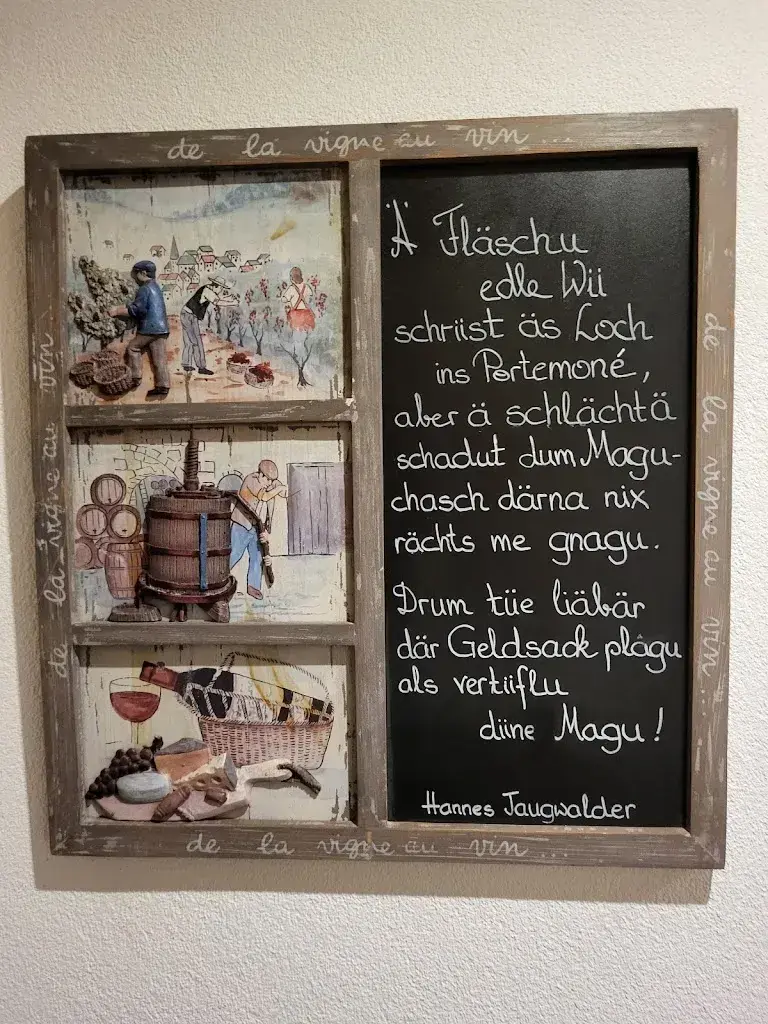 de la vigne au vin...
de la vigne au vin
Ä Fläschu
edle Wii
schriist äs Loch
ins Portemoné,
aber ä schlächtä
schadut dum Magu-
chasch därna nix
rächts me gnagu.
Drum tüe liäbär
där Geldsack plågu
als vertiiflu
diine Magu!
Hannes Taugwalder
de la vigne au vin...
de la vigne au vin...